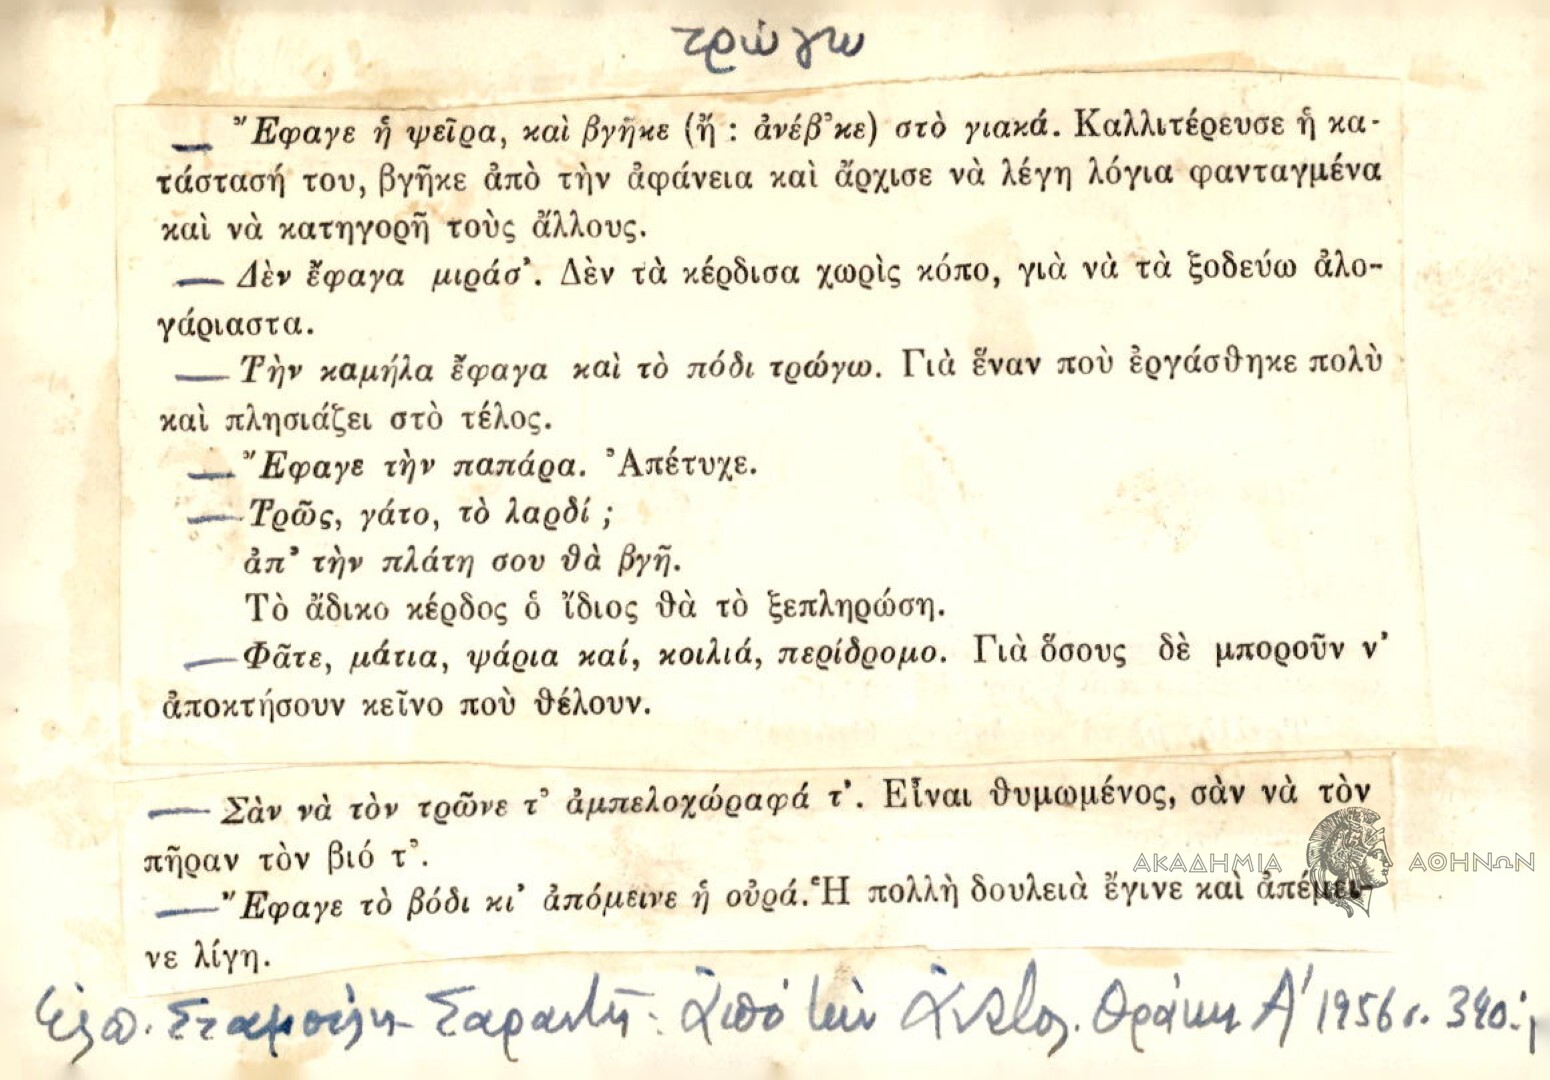 τρώγω
— Ἔφαγε ἡ ψεῖρα, καὶ βγῆκε (ἤ : ἀνέβ᾿κε) στὸ γιακά. Καλλιτέρευσε ἡ κα-
τάστασή του, βγῆκε ἀπὸ τὴν ἀφάνεια καὶ ἄρχισε νὰ λέγη λόγια φανταγμένα
καὶ νὰ κατηγορῆ τοὺς ἄλλους.
— Δὲν ἔφαγα μιράσ᾿. Δὲν τὰ κέρδισα χωρὶς κόπο, γιὰ νὰ τὰ ξοδεύω ἀλο-
γάριαστα.
— Τὴν καμήλα ἔφαγα καὶ τὸ πόδι τρώγω. Γιὰ ἕναν ποὺ ἐργάσθηκε πολὺ
καὶ πλησιάζει στὸ τέλος.
— Ἔφαγε τὴν παπάρα. Ἀπέτυχε.
— Τρῶς, γάτο, τὸ λαρδί ;
ἀπ᾿ τὴν πλάτη σου θὰ βγῆ.
Τὸ ἄδικο κέρδος ὁ ἴδιος θὰ τὸ ξεπληρώση.
— Φᾶτε, μάτια, ψάρια καί, κοιλιά, περίδρομο. Γιὰ ὅσους δὲ μποροῦν ν᾿
ἀποκτήσουν κεῖνο ποὺ θέλουν.
— Σὰν νὰ τὸν τρῶνε τ᾿ ἀμπελοχώραφά τ᾿. Εἶναι θυμωμένος, σὰν νὰ τὸν
πῆραν τὸν βιό τ᾿.
ΑΚΑΔΗΜΙΑ ΑΘΗΝΩΝ
— Ἔφαγε τὸ βόδι κι᾿ ἀπόμεινε ἡ οὐρά. Ἡ πολλὴ δουλειὰ ἔγινε καὶ ἀπέμει-
νε λίγη.
Ἐλπ. Σταμούλη - Σαραντῆ : Ἀπὸ τὴν Ἀνατολ. Θράκη Α΄ 1956 σ. 340